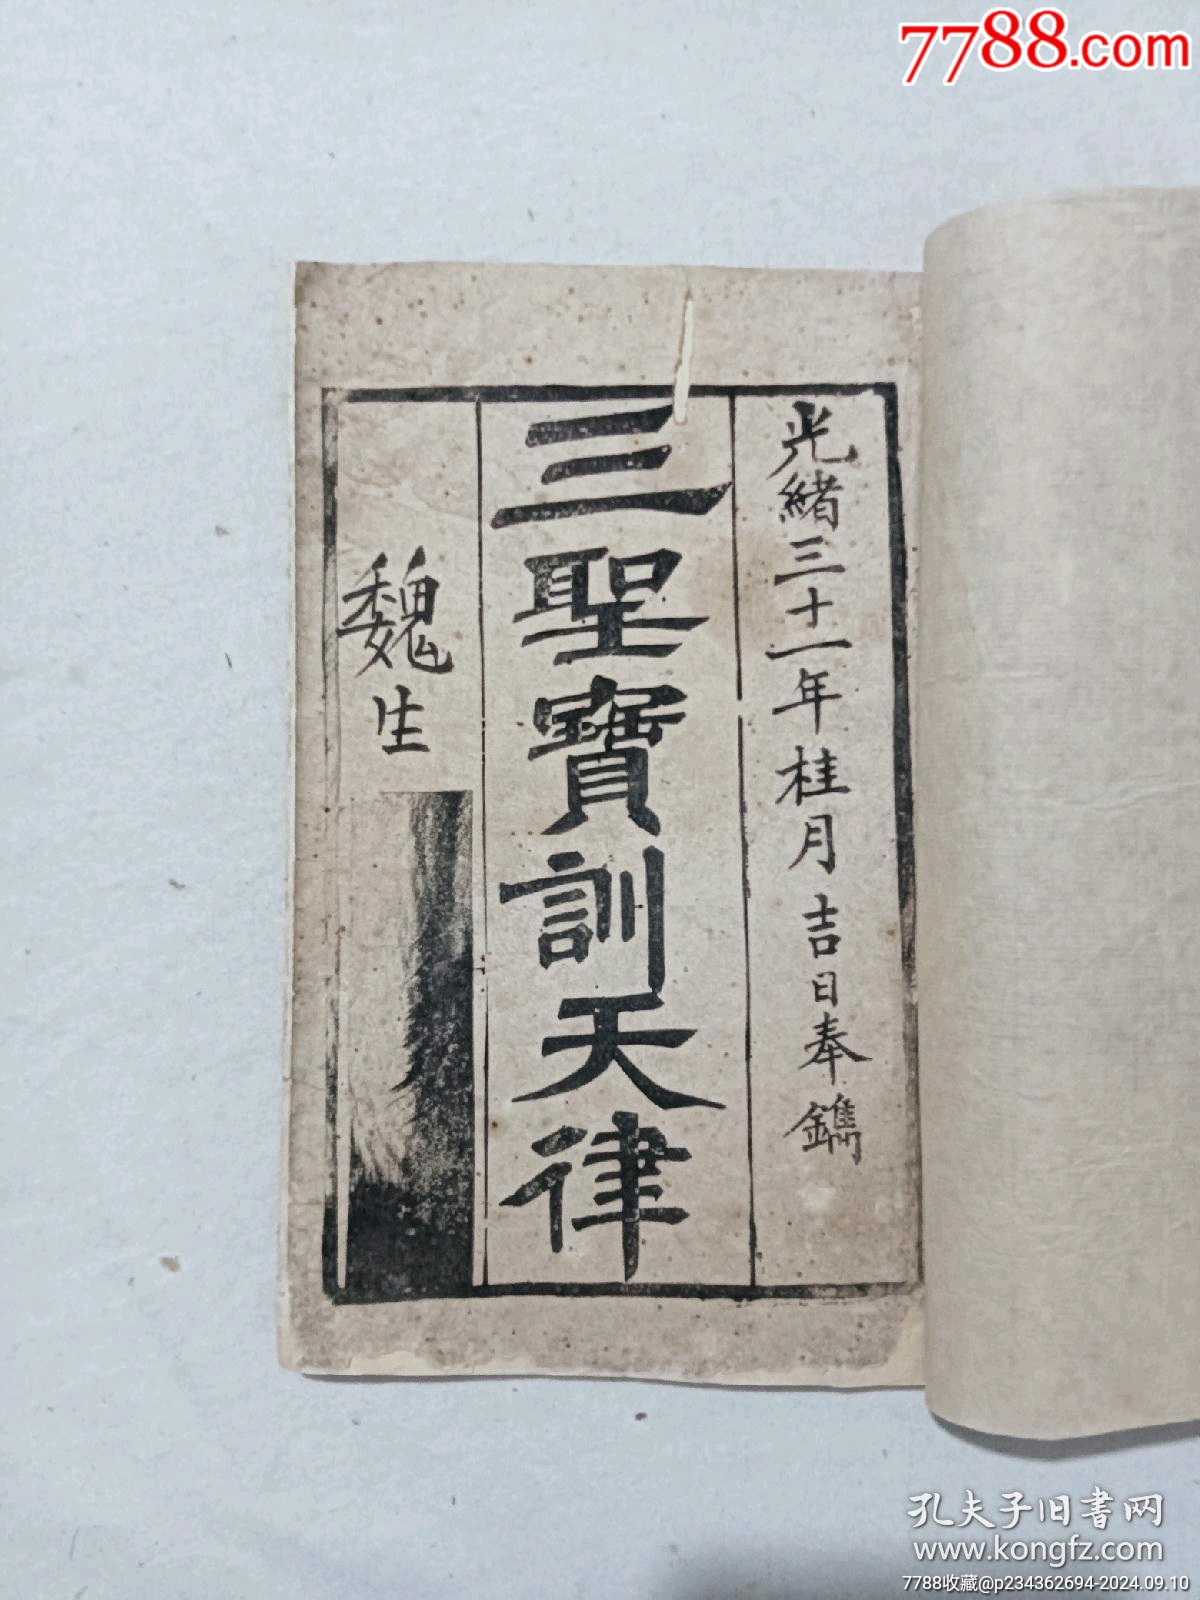 7788.com
光緒三十一年桂月吉日奉鐫
三聖寶訓天律
魏生
孔夫子旧书网
www.kongfz.com
7788收藏@p234362694-2024.09.10